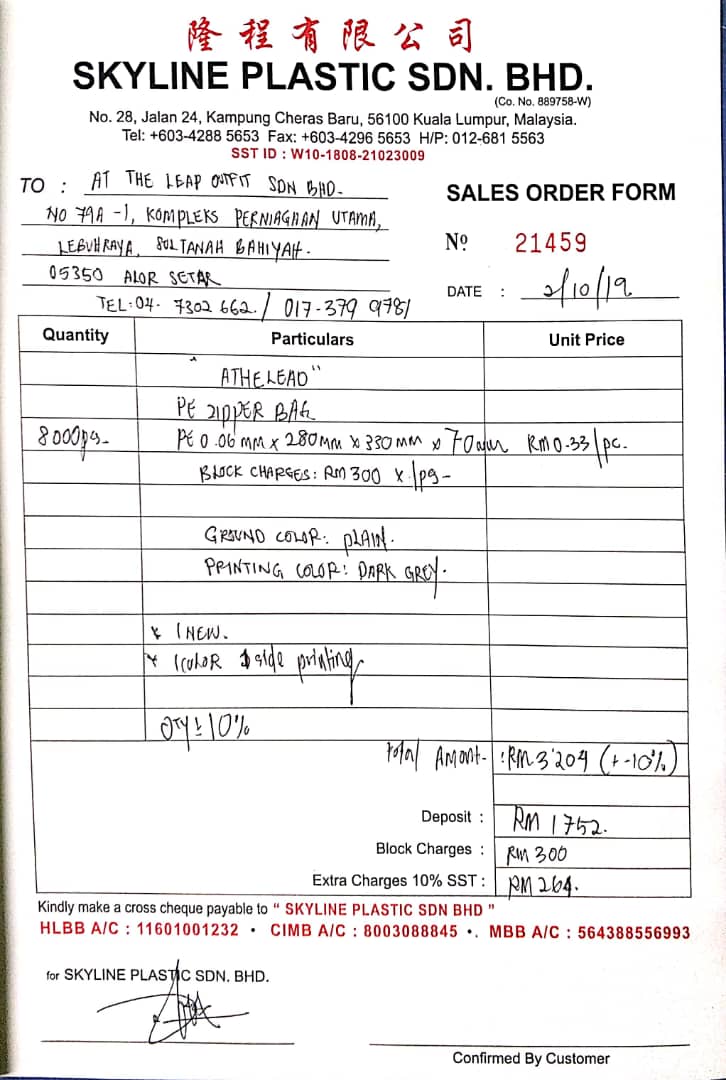 隆程有限公司
SKYLINE PLASTIC SDN. BHD.
(Co. No. 889758-W)
No. 28, Jalan 24, Kampung Cheras Baru, 56100 Kuala Lumpur, Malaysia.
Tel: +603-4288 5653 Fax: +603-4296 5653 H/P: 012-681 5563
SST ID : W10-1808-21023009
TO : AT THE LEAP OUTFIT SDN BHD-
NO 79A -1, KOMPLEKS PERNIAGAAN UTAMA,
LEBUHRAYA, SULTANAH BAHIYAH.
05350 ALOR SETAR
TEL: 04- 7302 662 / 017-379 9781
SALES ORDER FORM
Nº 21459
DATE : 2/10/19
Quantity Particulars Unit Price
"ATHELEAD"
PE ZIPPER BAG
8000pg- PE 0.06 MM x 280MM x 330 MM x 70 RM0-33/pc.
BLOCK CHARGES: RM 300 x 1pg-
GROUND COLOR: PLAIN.
PRINTING COLOR: DARK GREY.
* 1 NEW.
* 1 COLOR 1 side printing
QTY ± 10%
Total Amont- : RM 3'204 (+-10%)
Deposit : RM 1752.
Block Charges : RM 300
Extra Charges 10% SST : RM 264.
Kindly make a cross cheque payable to " SKYLINE PLASTIC SDN BHD "
HLBB A/C : 11601001232 • CIMB A/C : 8003088845 •. MBB A/C : 564388556993
for SKYLINE PLASTIC SDN. BHD.
Confirmed By Customer